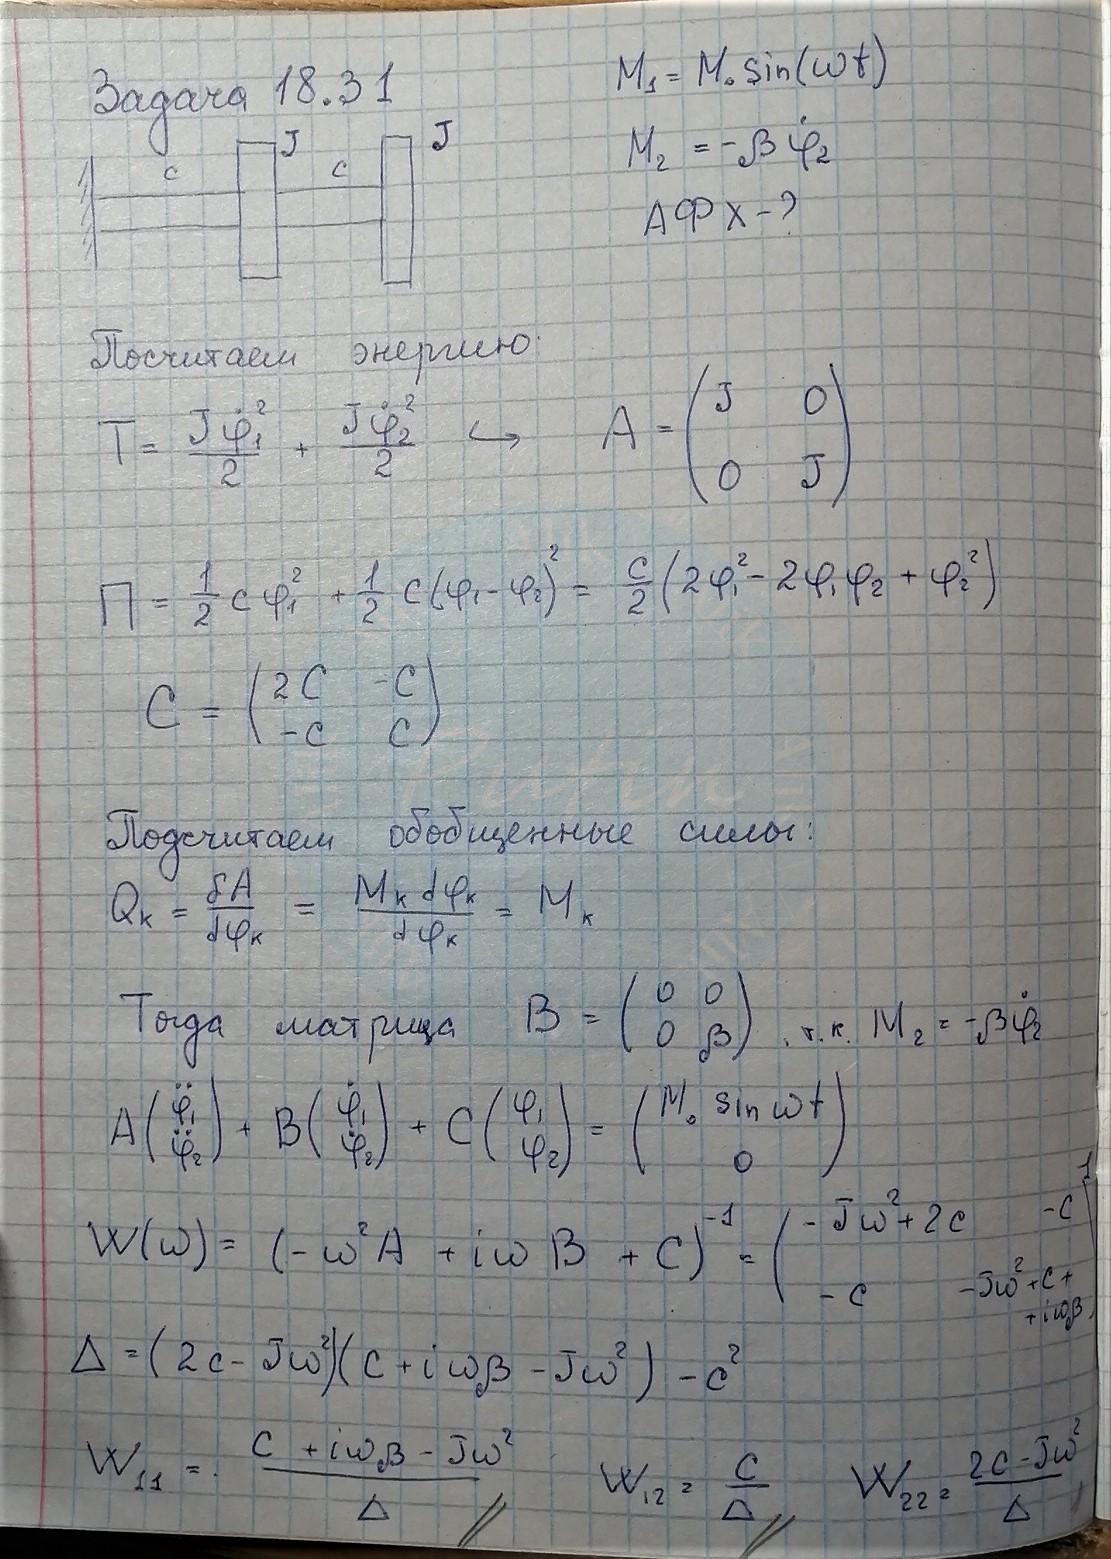 Задача 18.31
M₁ = M₀ sin(ωt)
M₂ = -βφ̇₂
АФХ - ?
c J c J
Посчитаем энергию:
T = Jφ̇₁²/2 + Jφ̇₂²/2 ↪ A = (J 0; 0 J)
П = 1/2 cφ₁² + 1/2 c(φ₁-φ₂)² = c/2 (2φ₁² - 2φ₁φ₂ + φ₂²)
C = (2C -C; -C C)
Подсчитаем обобщенные силы:
Qₖ = δA/dφₖ = Mₖ dφₖ/dφₖ = Mₖ
Тогда матрица B = (0 0; 0 β), т.к. M₂ = -βφ̇₂
A(φ̈₁; φ̈₂) + B(φ̇₁; φ̇₂) + C(φ₁; φ₂) = (M₀ sin ωt; 0)
W(ω) = (-ω²A + iωB + C)⁻¹ = (-Jω²+2c -c; -c -Jω²+c++iωβ)⁻¹
Δ = (2c - Jω²)(c + iωβ - Jω²) - c²
W₁₁ = (c + iωβ - Jω²)/Δ // W₁₂ = c/Δ // W₂₂ = (2c - Jω²)/Δ